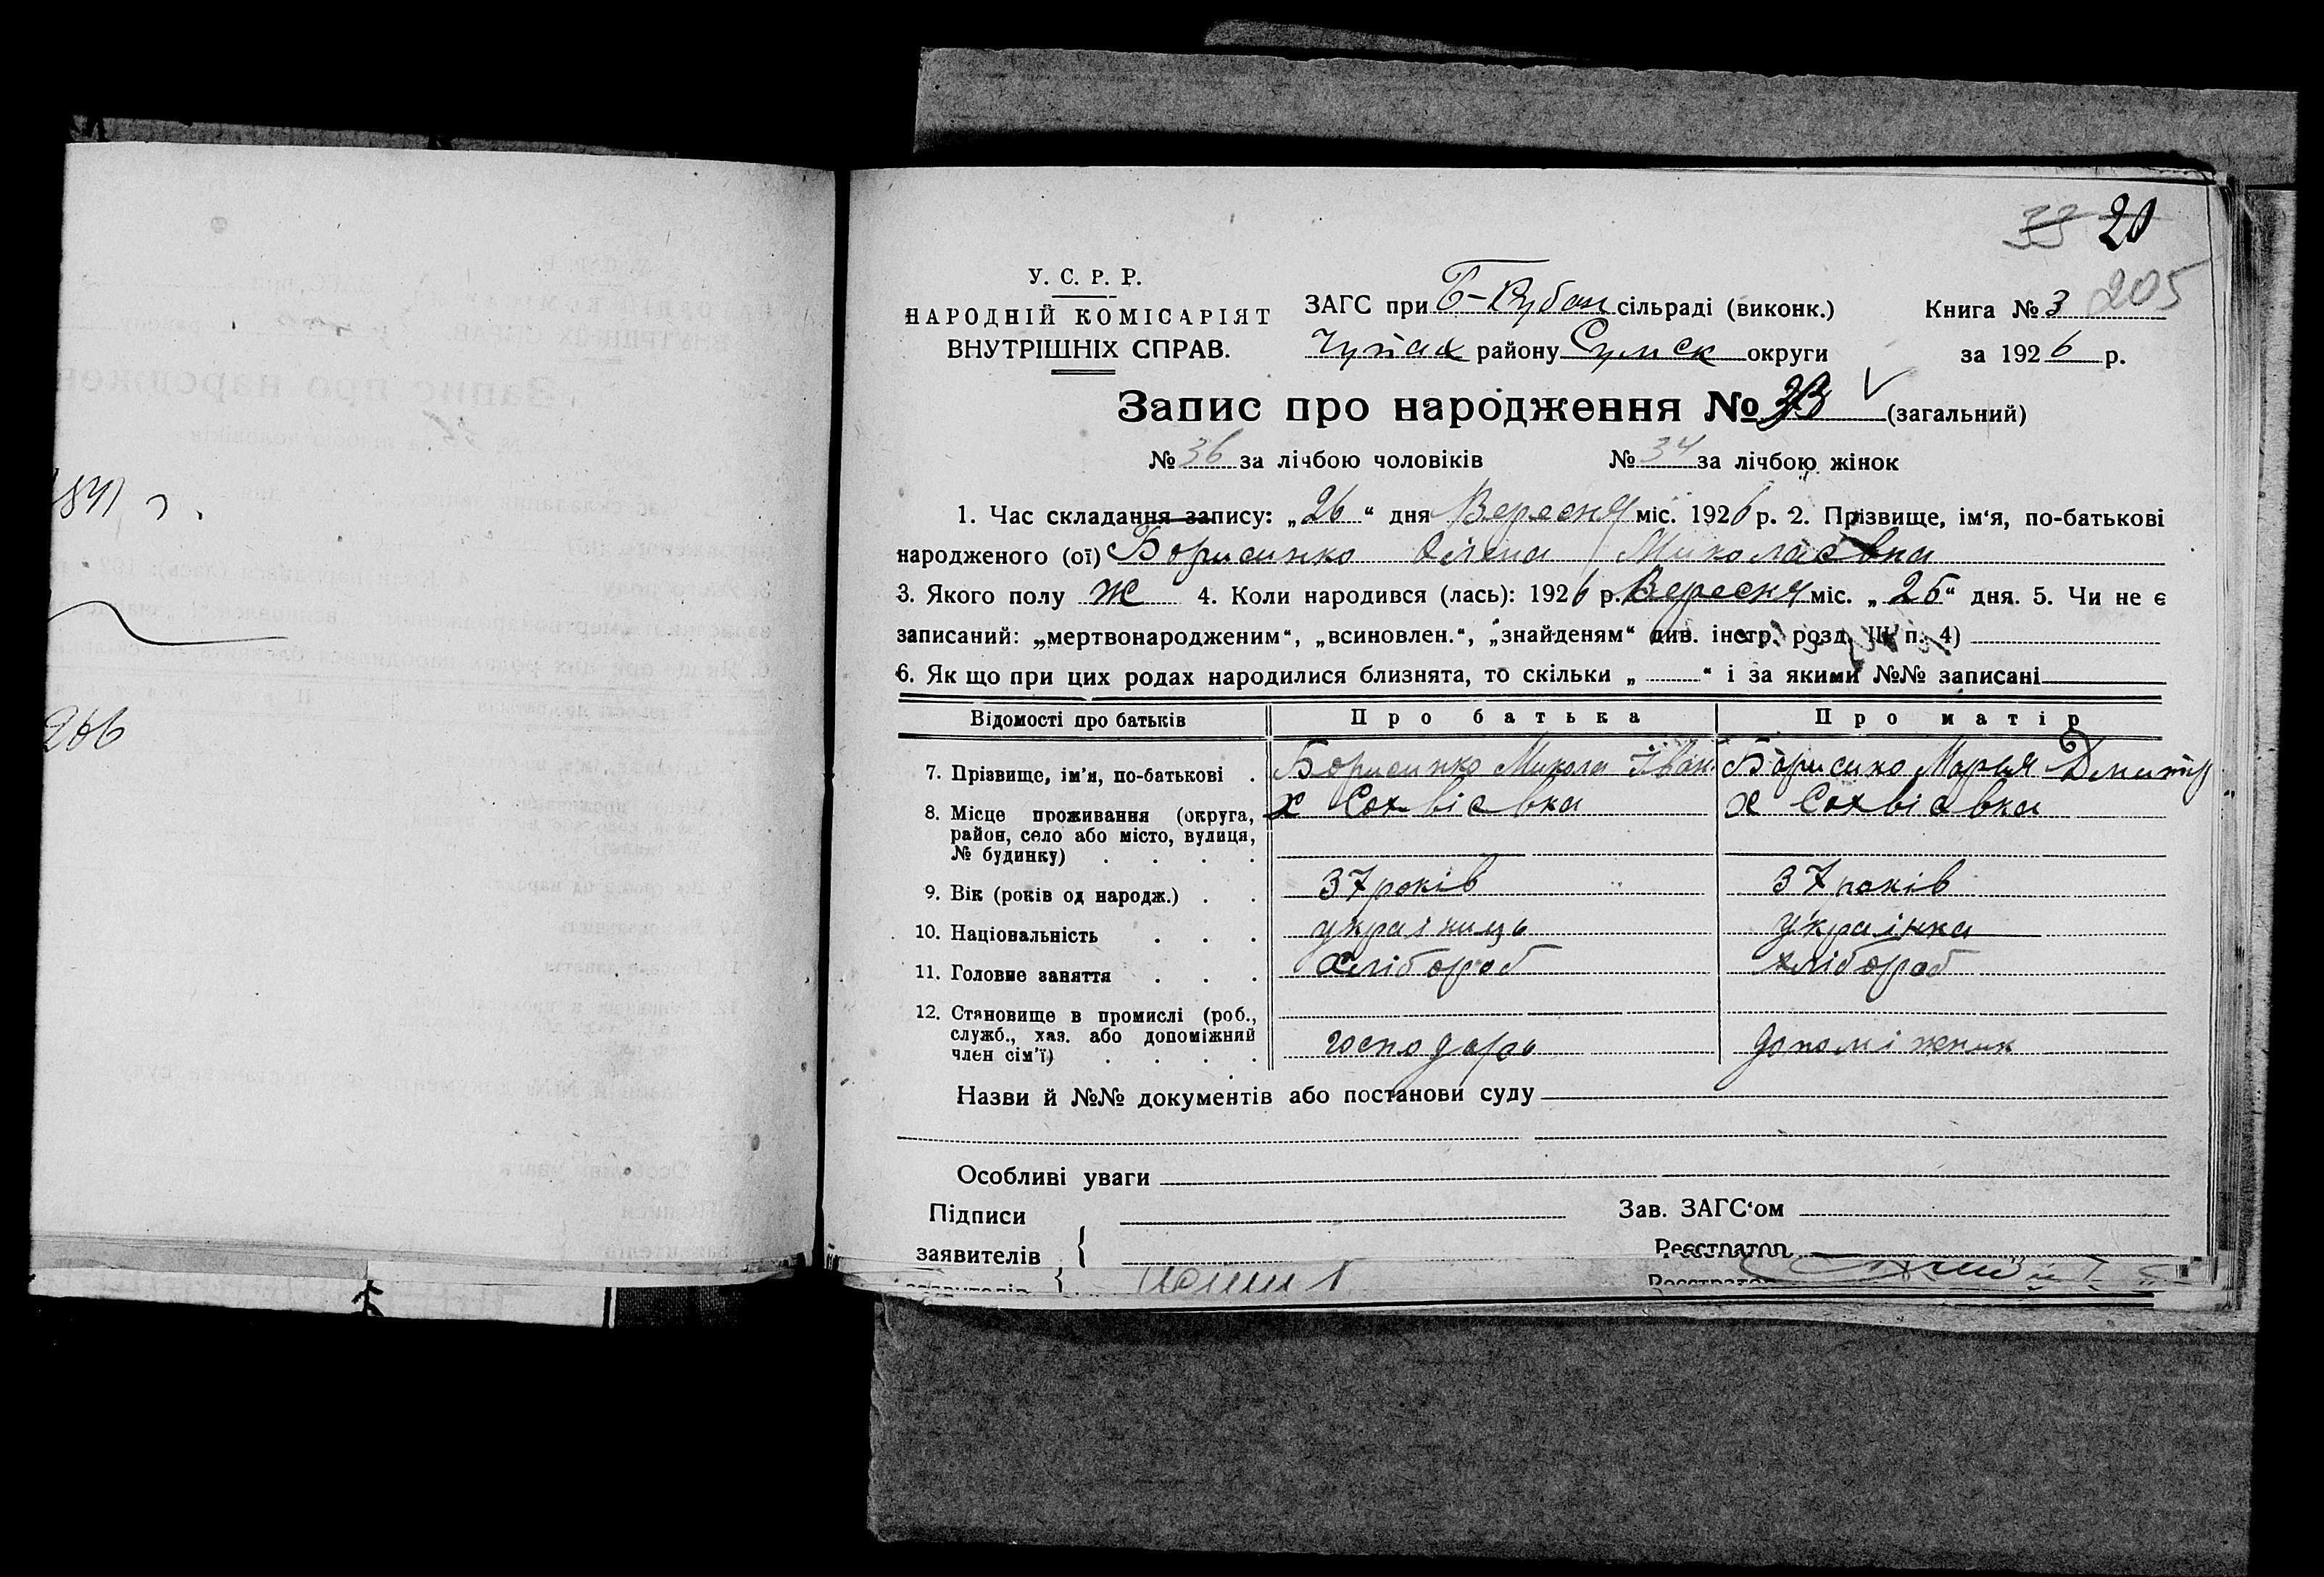 33 20
205
У. С. Р. Р.
НАРОДНІЙ КОМІСАРІЯТ
ВНУТРІШНІХ СПРАВ.
ЗАГС при Б-Рубан сільраді (виконк.)
Чупах району Сумск округи
Книга № 3
за 1926 р.
Запис про народження № (загальний)
№ 36 за лічбою чоловіків № 34 за лічбою жінок
1. Час складання запису: „26“ дня Вересня міс. 1926 р. 2. Прізвище, ім‘я, по-батькові
народженого (ої) Борисенко Олена Миколаєвна
3. Якого полу Ж 4. Коли народився (лась): 1926 р. Вересня міс. „25“ дня. 5. Чи не є
записаний: „мертвонародженим“, „всиновлен.“, „знайденям“ див. інстр. розд. III п. 4)
6. Як що при цих родах народилися близнята, то скільки „ “ і за якими №№ записані
Відомості про батьків Про батька Про матір
7. Прізвище, ім'я, по-батькові . Борисенко Микола Іван Борисенко Марья Дмитр
8. Місце проживання (округа, район, село або місто, вулиця, № будинку) . . . . х Сохвієвка х Сохвієвка
9. Вік (років од народж.) . . 37 років 37 років
10. Національність . . . українець українка
11. Головне заняття . . . хлібороб хлібороб
12. Становище в промислі (роб., служб., хаз. або допоміжний член сім'ї) . . . . господарь допоміжник
Назви й №№ документів або постанови суду
Особливі уваги
Підписи
заявителів {
Зав. ЗАГС‘ом
Реєстратор
Реєстратор
266